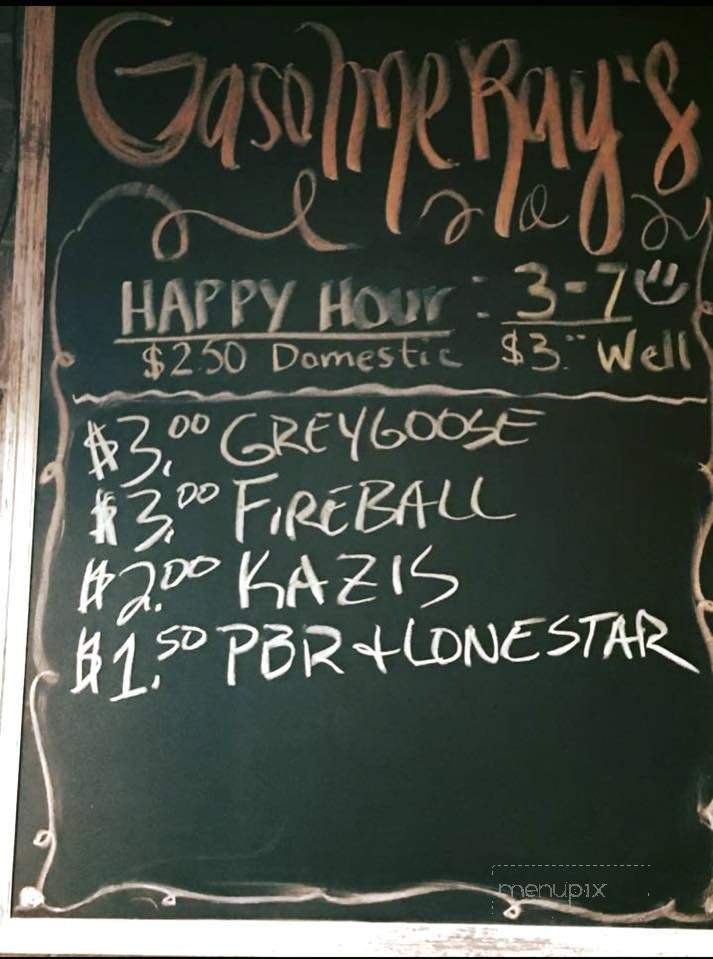 Gasoline Ray's
HAPPY HOUr : 3-7
$2.50 Domestic $3.00 Well
$3.00 GREYGOOSE
$3.00 FiREBALL
$2.00 KAZIS
$1.50 PBR + LONESTAR
menupix